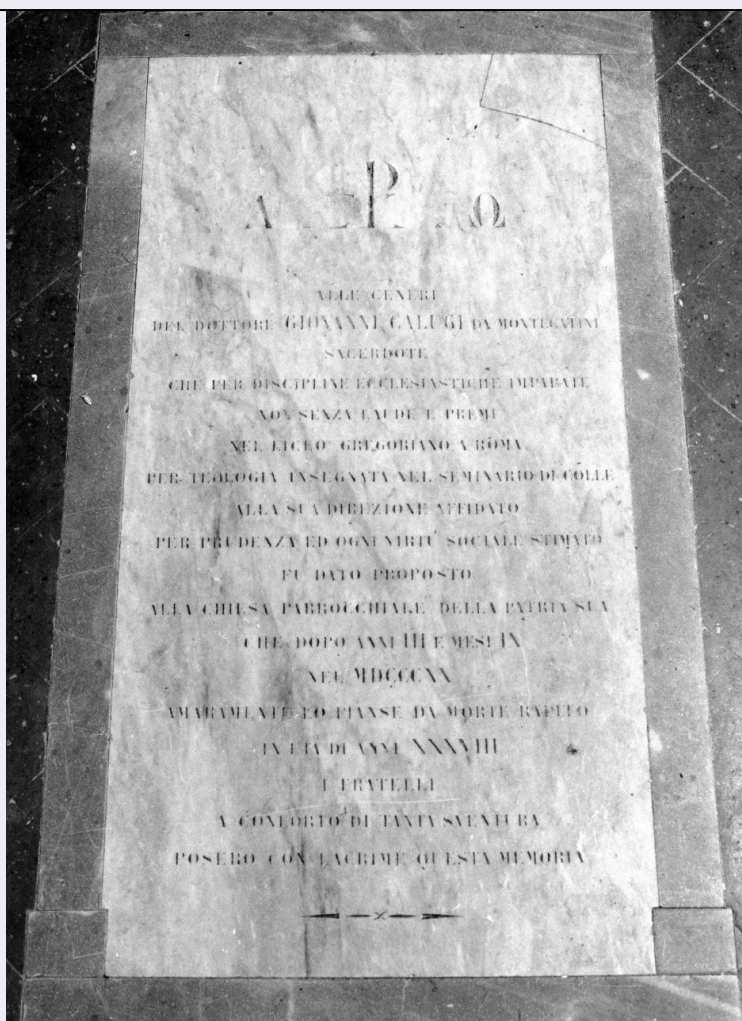 Α Ρ Ω
ALLE CENERI
DEL DOTTORE GIOVANNI CALUGI DA MONTECATINI
SACERDOTE
CHE PER DISCIPLINE ECCLESIASTICHE IMPARATE
NON SENZA LAUDE E PREMI
NEL LICEO GREGORIANO A ROMA
PER TEOLOGIA INSEGNATA NEL SEMINARIO DI COLLE
ALLA SUA DIREZIONE AFFIDATO
PER PRUDENZA ED OGNI VIRTÙ SOCIALE STIMATO
FU DATO PROPOSTO
ALLA CHIESA PARROCCHIALE DELLA PATRIA SUA
CHE DOPO ANNI III E MESI IX
NEL MDCCCXX
AMARAMENTE LO PIANSE DA MORTE RAPITO
IN ETÀ DI ANNI XXXXVIII
I FRATELLI
A CONFORTO DI TANTA SVENTURA
POSERO CON LACRIME QUESTA MEMORIA